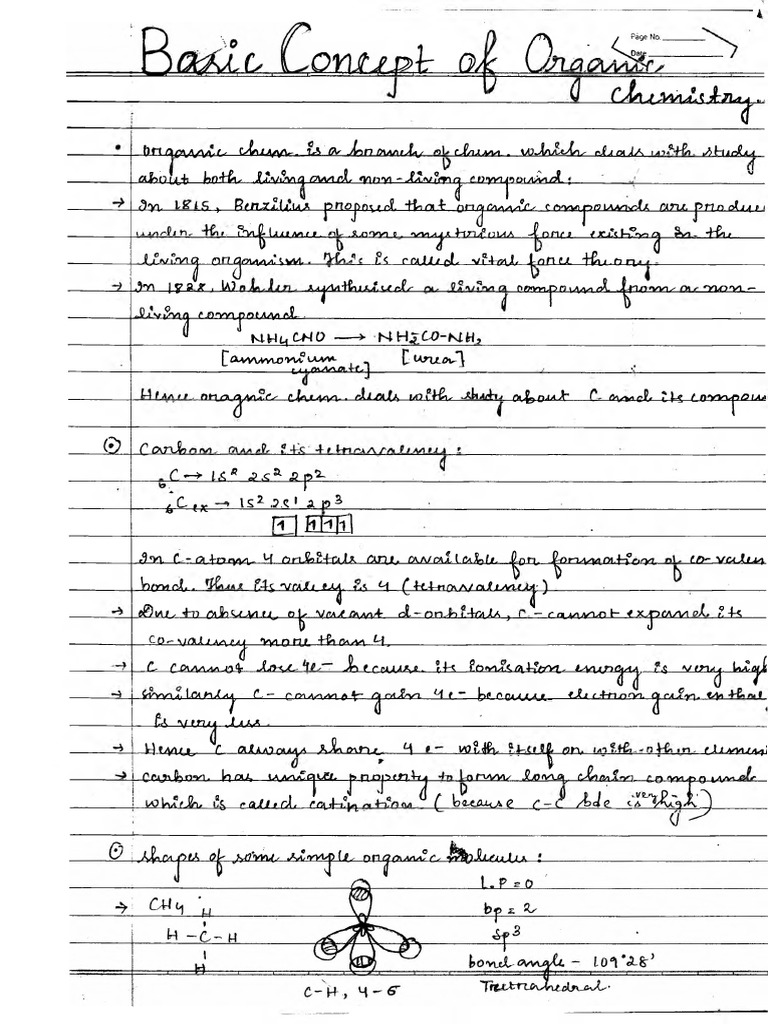 Page No.
Date
Basic Concept of Organic
Chemistry.
• Organic chem. is a branch of chem. which deals with study
about both living and non-living compound:
→ In 1815, Berzilius proposed that organic compounds are produce
under the influence of some mysterious force existing in the
living organism. This is called vital force theory.
→ In 1828, Wohler synthesised a living compound from a non-
living compound.
NH4CNO → NH2CO-NH2
[ammonium cyanate] [urea]
Hence oragnic chem. deals with study about C and its compoun
⊙ Carbon and its tetravalency:
₆C → 1s² 2s² 2p²
₆C ex → 1s² 2s¹ 2p³
1 1 1 1
In C-atom 4 orbitals are available for formation of co-valen
bond. Thus its valecy is 4 (tetravalency)
→ Due to absence of vacant d-orbitals, C-cannot expand its
co-valency more than 4.
→ C cannot lose 4e- because its ionisation energy is very high
→ similarly C- cannot gain 4e- because electron gain enthal
is very less.
→ Hence C always share 4 e- with itself or with other elemen
→ carbon has unique property to form long chain compound
which is called catination. (because C-C bde is very high)
⊙ Shapes of some simple organic molecules:
→ CH4
H
H-C-H
H
C-H, 4-σ
L.P = 0
bp = 2
sp³
bond angle - 109°28'
Tretrahedral.